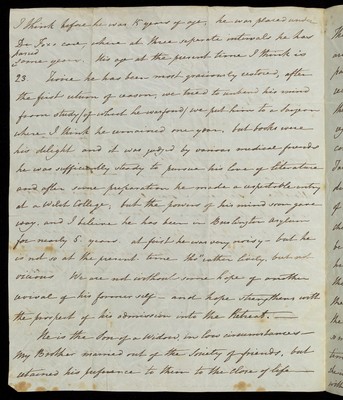 I think before he was 18 years of age, he was placed under
Dr Fox's care, where at three separate intervals he has
passed
some years. His age at the present time I think is
23. Twice he has been most graciously restored, after
the first return of reason, we tried to unbend his mind
from study (of which he was fond) we put him to a Surgeon
where I think he remained one year, but books were
his delight and it was judged by various medical friends
he was sufficiently steady to pursue his love of literature
and after some preparation he made a respectable entry
at a Welsh College, but the powers of his mind soon gave
way, and I believe he has been in Brislington Asylum
for nearly 5 years. at first he was very noisy - but he
is not so at the present time tho' rather lively, but not
vicious We are not without some hope of another
revival of his former self - and hope strengthens with
the prospect of his admission into the Retreat. -
He is the Son of a Widow, in low circumstances -
My Brother married out of the Society of friends, but
retained his preference to them to the close of life -